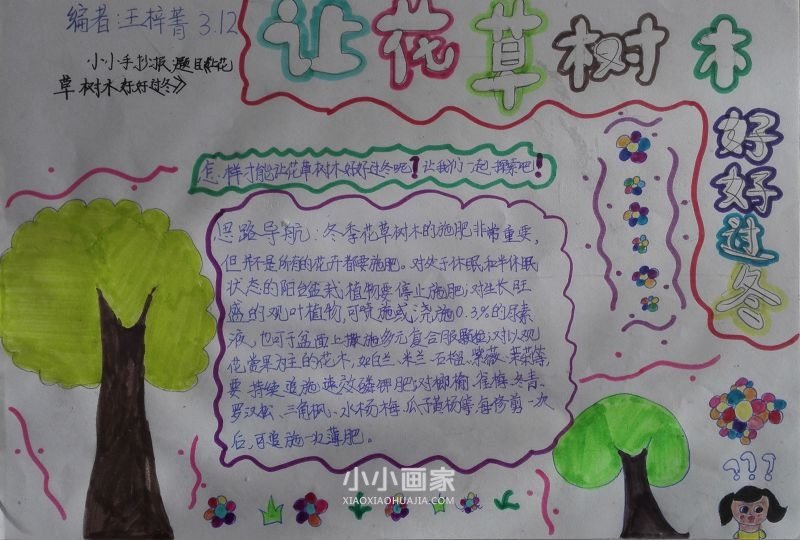 编者:王梓菁 3.12
小小手抄报题目《让花
草树木好好过冬》
让花草树木
好好过冬
怎样才能让花草树木好好过冬呢?让我们一起探索吧!
思路导航:冬季花草树木的施肥非常重要,
但并不是所有的花卉都要施肥。对处于休眠和半休眠
状态的阳台盆栽植物要停止施肥;对生长旺
盛的观叶植物,可喷施或浇施0.3%的尿素
液,也可于盆面上撒施多元复合肥颗粒;对以观
花赏果为主的花木,如白兰、米兰、石榴、紫薇、茉莉等,
要持续追施速效磷钾肥;对榔榆、雀梅、冬青、
罗汉松、三角枫、水杨梅、瓜子黄杨等,每修剪一次
后,可追施一次薄肥。
???
小小画家
XIAOXIAOHUAJIA.COM